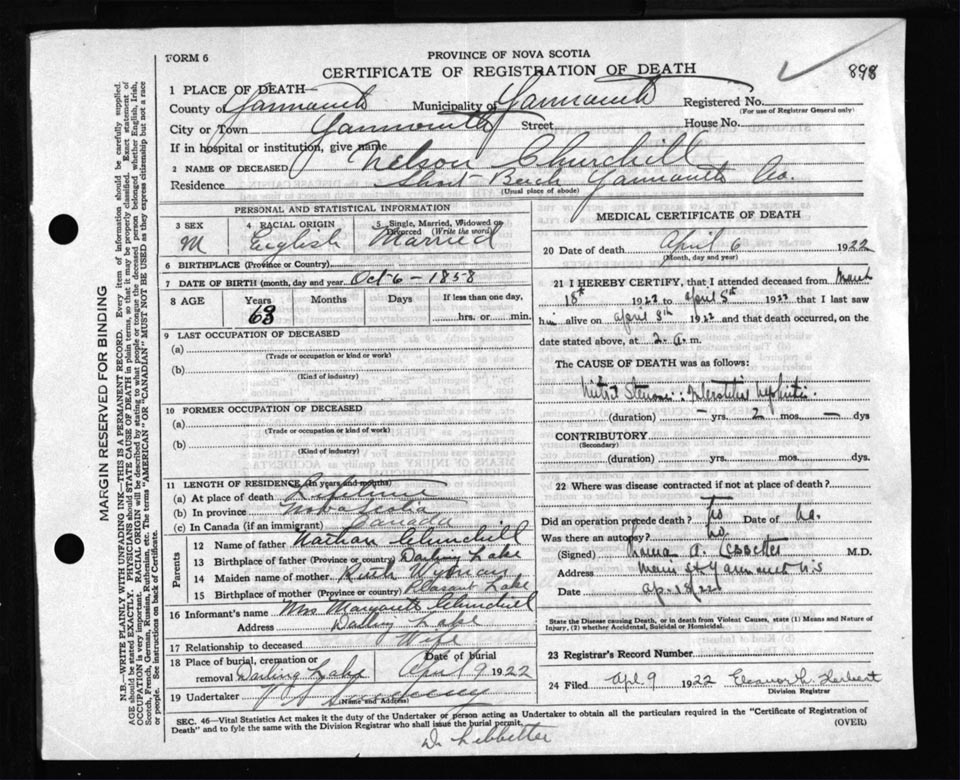 FORM 6
PROVINCE OF NOVA SCOTIA
CERTIFICATE OF REGISTRATION OF DEATH
898
1 PLACE OF DEATH—
County of Yarmouth Municipality of Yarmouth Registered No.
(For use of Registrar General only)
City or Town Yarmouth Street House No.
If in hospital or institution, give name
2 NAME OF DECEASED Nelson Churchill
Residence Short Beach Yarmouth Co.
(Usual place of abode)
PERSONAL AND STATISTICAL INFORMATION
3 SEX M
4 RACIAL ORIGIN English
5 Single, Married, Widowed or Divorced (Write the word) Married
6 BIRTHPLACE (Province or Country)
7 DATE OF BIRTH (month, day and year) Oct-6-1858
8 AGE Years Months Days If less than one day,
63 hrs. or min.
9 LAST OCCUPATION OF DECEASED
(a)
(Trade or occupation or kind or work)
(b)
(Kind of industry)
10 FORMER OCCUPATION OF DECEASED
(a)
(Trade or occupation or kind of work)
(b)
(Kind of industry)
11 LENGTH OF RESIDENCE (In years and months)
(a) At place of death Lifetime
(b) In province Nova Scotia
(c) In Canada (if an immigrant) Canada
Parents
12 Name of father Nathan Churchill
13 Birthplace of father (Province or country) Darling Lake
14 Maiden name of mother Ruth Wyman
15 Birthplace of mother (Province or country) Pleasant Lake
16 Informant's name Mrs Margaret Churchill
Address Darling Lake
17 Relationship to deceased Wife
18 Place of burial, cremation or removal Darling Lake Date of burial April 9 1922
19 Undertaker
(Name and Address)
MEDICAL CERTIFICATE OF DEATH
20 Date of death April 6 1922
(Month, day and year)
21 I HEREBY CERTIFY, that I attended deceased from March
18th 1922 to April 5th 1922 that I last saw
him alive on April 5th 1922 and that death occurred, on the
date stated above, at 2 a.m.
The CAUSE OF DEATH was as follows:
(duration) — yrs. 2 mos. — dys
CONTRIBUTORY
(Secondary)
(duration) yrs. mos. dys.
22 Where was disease contracted if not at place of death?
Did an operation precede death? No Date of no.
Was there an autopsy? No
(Signed) M.D.
Address Main St Yarmouth N S
Date
State the Disease causing Death, or in death from Violent Causes, state (1) Means and Nature of Injury, (2) whether Accidental, Suicidal or Homicidal.
23 Registrar's Record Number
24 Filed Apl 9 1922 Eleanor L. Herbert
Division Registrar
SEC. 46—Vital Statistics Act makes it the duty of the Undertaker or person acting as Undertaker to obtain all the particulars required in the "Certificate of Registration of
Death" and to fyle the same with the Division Registrar who shall issue the burial permit. (OVER)
MARGIN RESERVED FOR BINDING
N.B.—WRITE PLAINLY WITH UNFADING INK—THIS IS A PERMANENT RECORD. Every item of information should be carefully supplied.
AGE should be stated EXACTLY. PHYSICIANS should STATE CAUSE OF DEATH in plain terms, so that it may be properly classified. Exact statement of
OCCUPATION is very important. RACIAL ORIGIN will be described by stating to what people or tongue the deceased person belonged whether English, Irish,
Scotch, French, German, Russian, Ruthenian, etc. The terms "AMERICAN" OR "CANADIAN" MUST NOT BE USED as they express citizenship but not a race
or people. See instructions on back of Certificate.